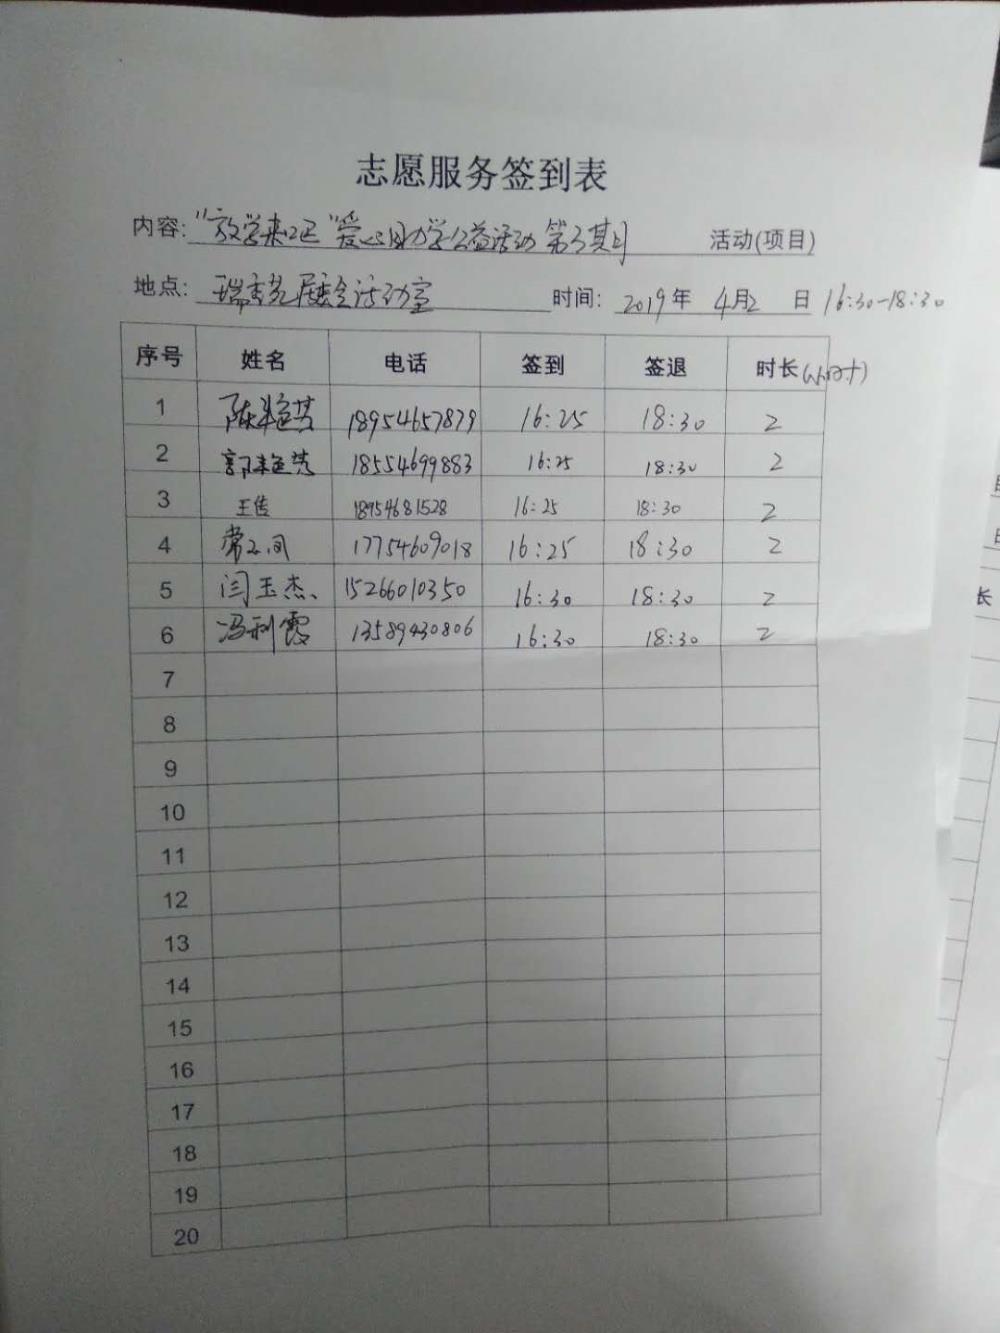 志愿服务签到表
内容: "放学来吧"爱心助学公益活动 第3期 活动(项目)
地点: 居委会活动室 时间: 2019年 4月2 日 16:30-18:30
序号 姓名 电话 签到 签退 时长(小时)
1 18954657879 16:25 18:30 2
2 18554699883 16:25 18:30 2
3 王倩 18954681528 16:25 18:30 2
4 17754609018 16:25 18:30 2
5 闫玉杰 15266010350 16:30 18:30 2
6 冯利霞 13589430806 16:30 18:30 2
7
8
9
10
11
12
13
14
15
16
17
18
19
20
长